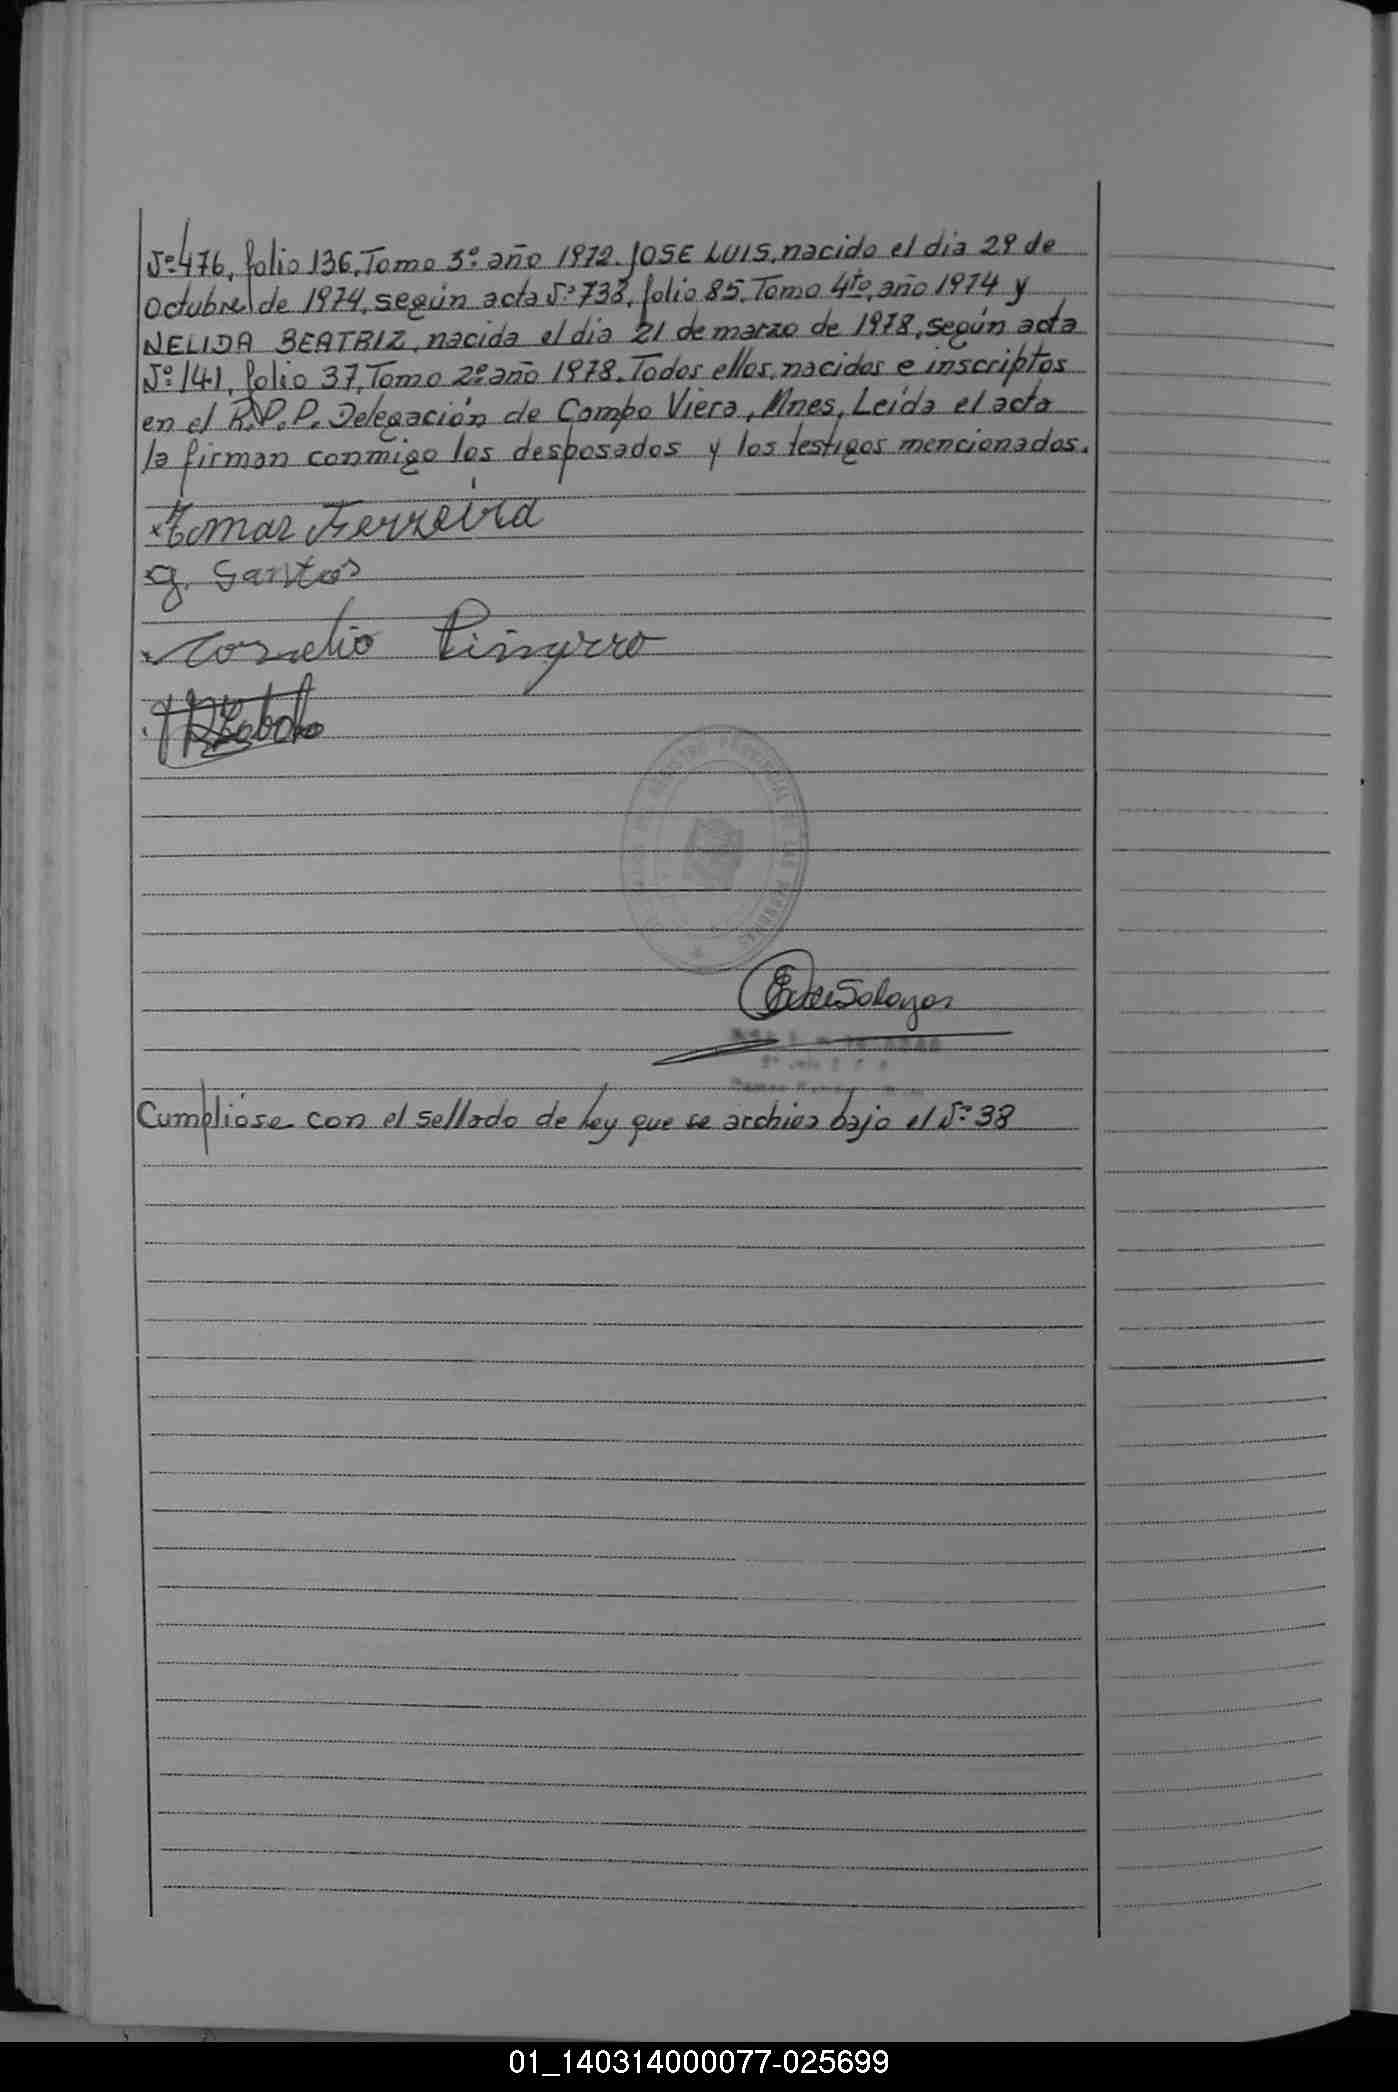 Nº 476, folio 136, Tomo 3º año 1972. JOSE LUIS, nacido el dia 29 de
Octubre de 1974, según acta Nº 733, folio 85, Tomo 4to, año 1974 y
NELIDA BEATRIZ, nacida el dia 21 de marzo de 1978, según acta
Nº 141, folio 37, Tomo 2º año 1978. Todos ellos, nacidos e inscriptos
en el R.P.P. Delegación de Campo Viera, Mnes, Leída el acta
la firman conmigo los desposados y los testigos mencionados.
Ferreira
g. Santos
Cornelio
Cumplióse con el sellado de ley que se archiva bajo el Nº 38
01_140314000077-025699